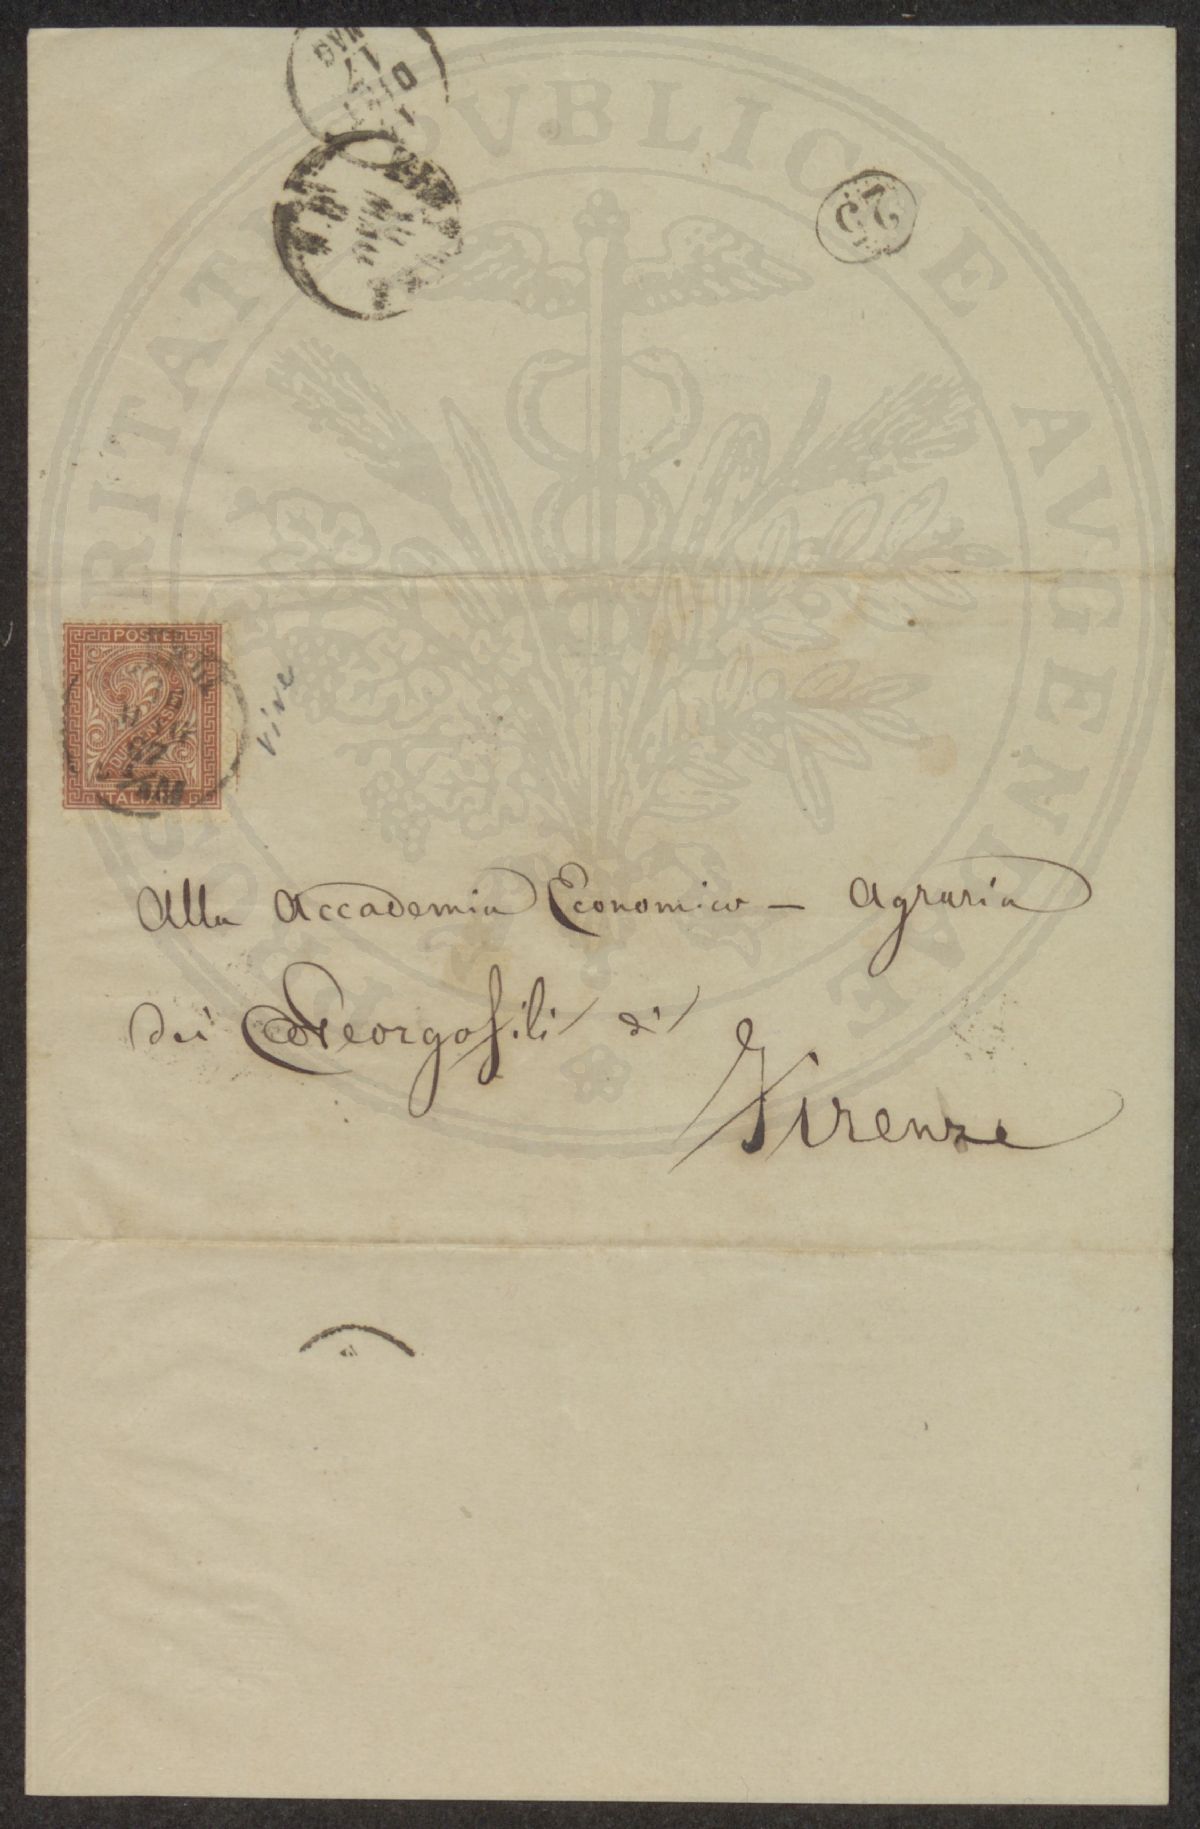 PROSPERITATI PVBLICAE AVGENDAE
25
POSTE
2
DUE CENTESIMI
ITALIANE
vive
Alla Accademia Economico - Agraria
dei Georgofili di
Firenze